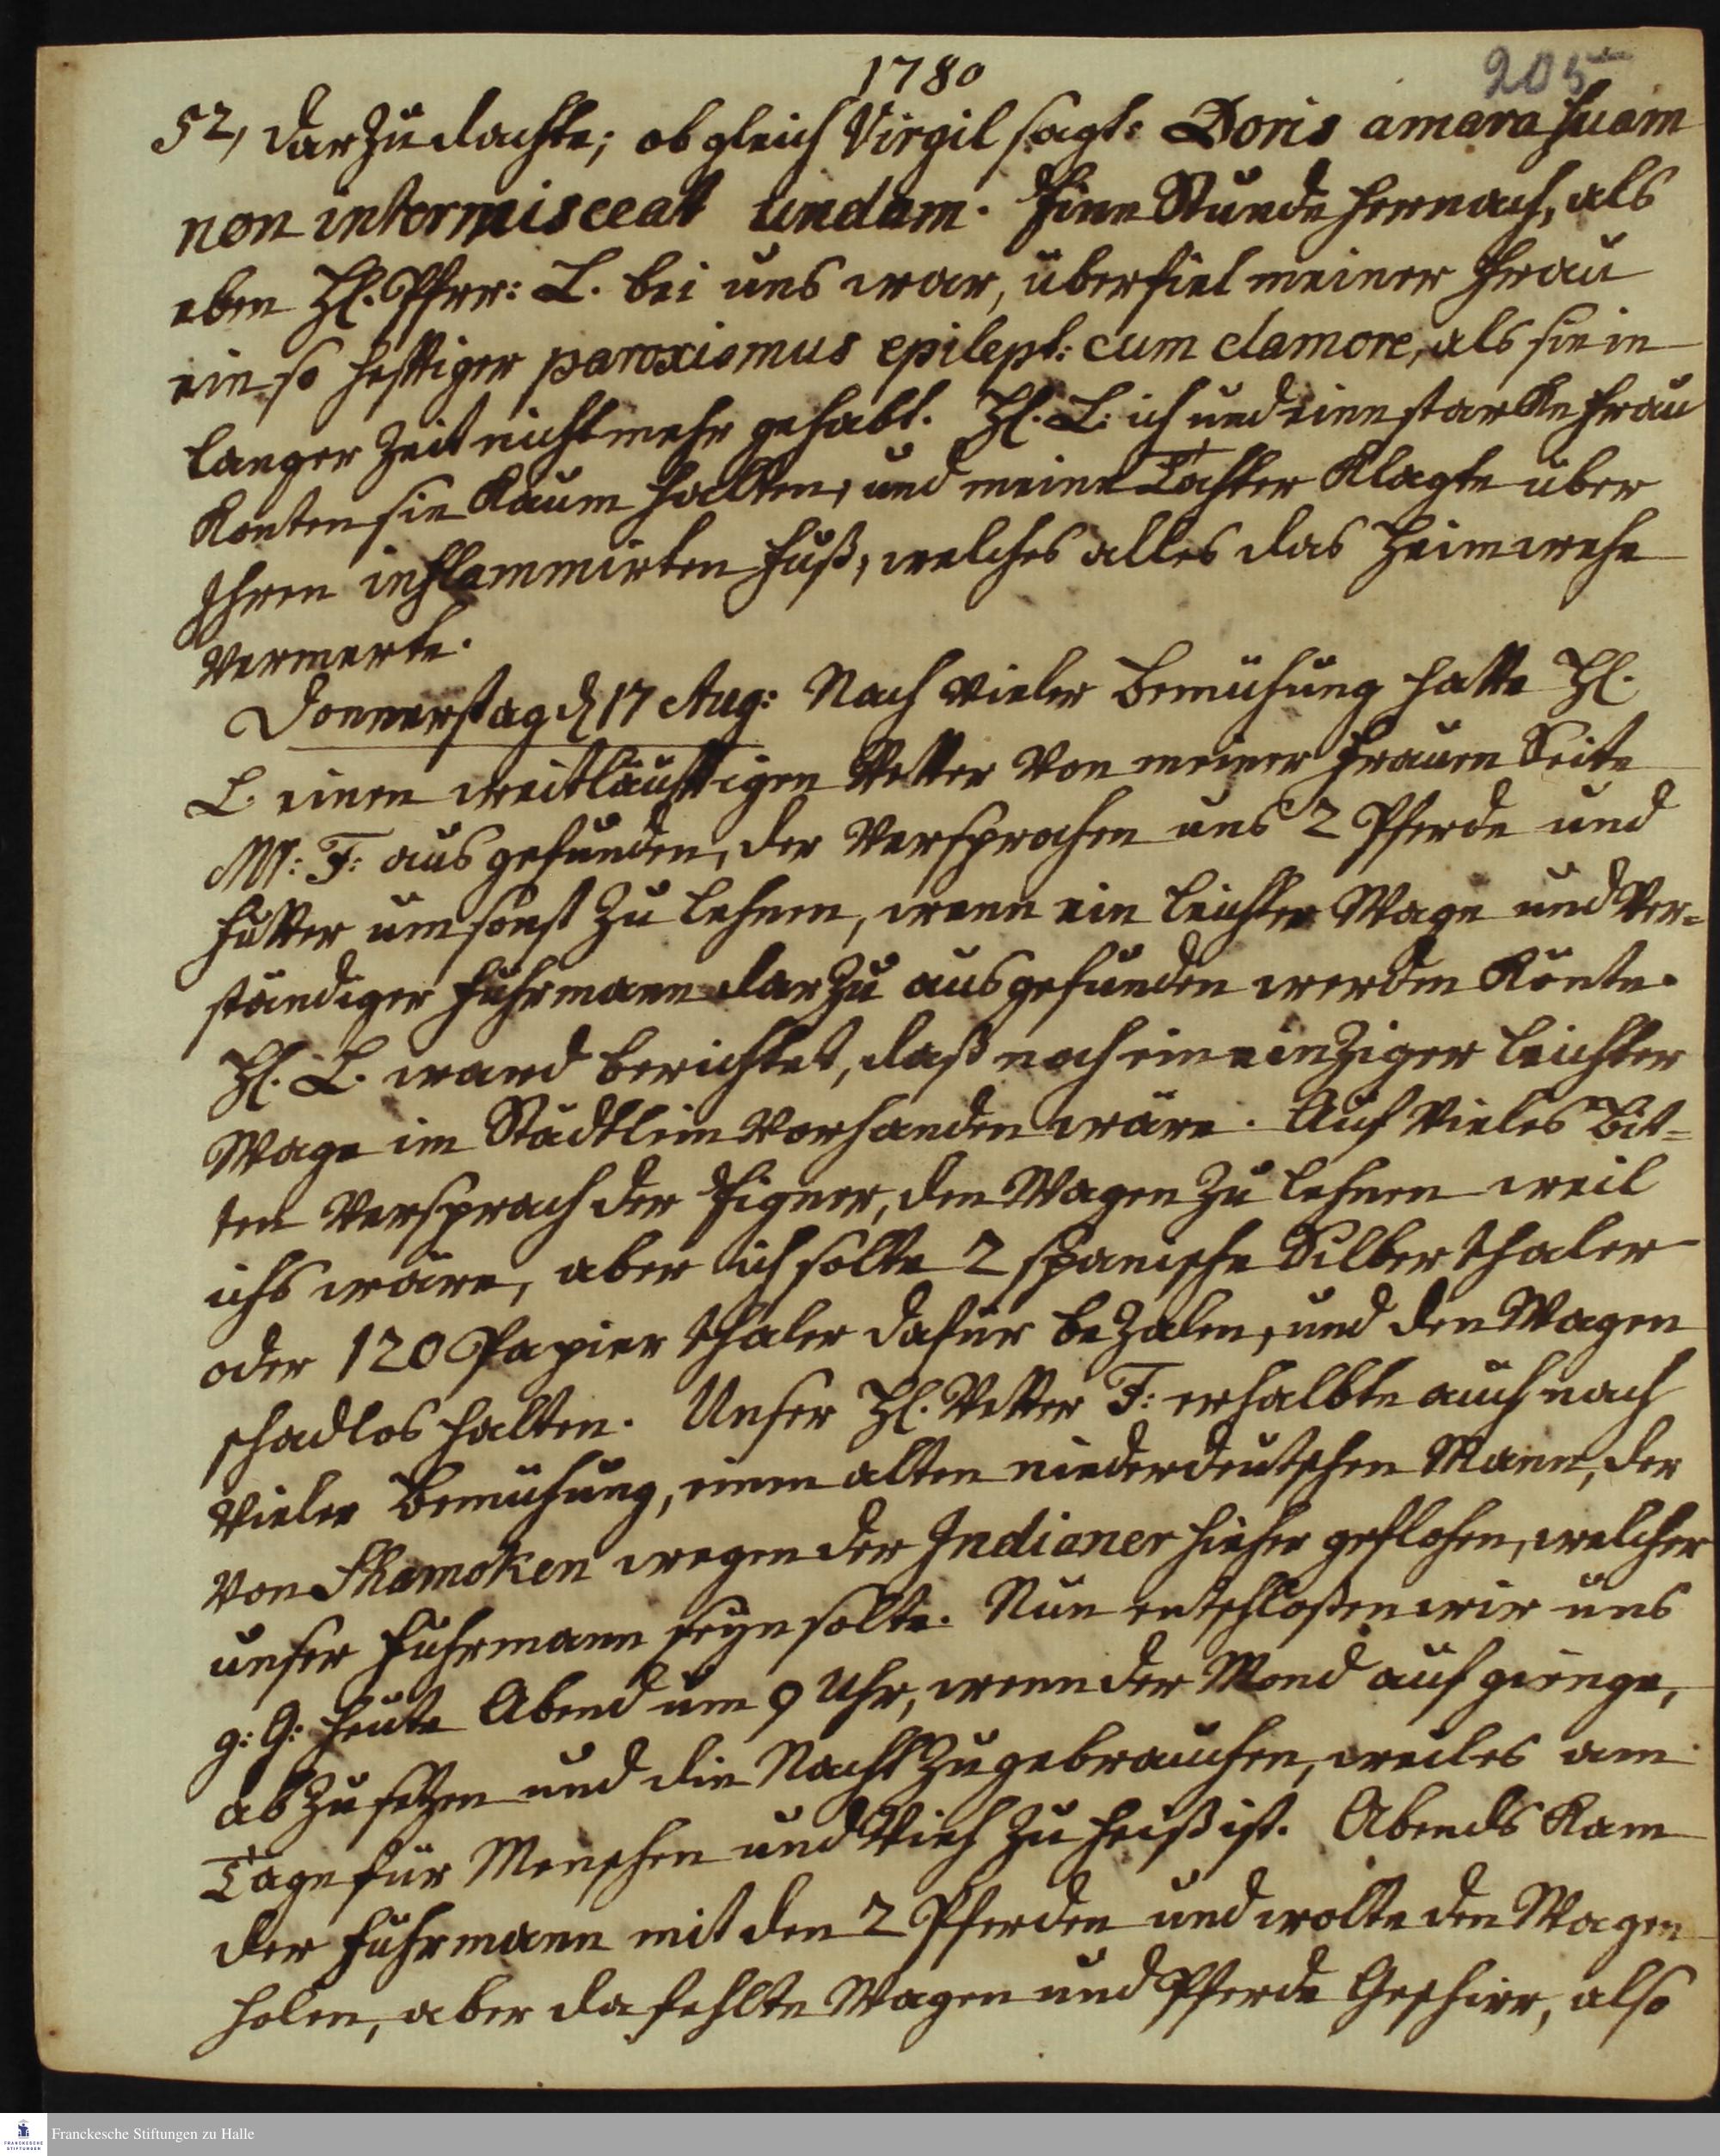 1780
205
52, darzu dachte; obgleich Virgil sagt: Doris amara suam
non intermisceat undam. Eine Stunde hernach, als
eben H. Pfrr: L. bei uns war, überfiel meiner Frau
ein so heftiger paroxismus epilept: cum clamore, als sie in
langer Zeit nicht mehr gehabt. H. L: ich und eine starke Frau
konten sie kaum halten, und meine Tochter klagte über
Ihren inflammirten Fuß, welches alles das Heimwehe
vermerte.
Donnerstag d 17 Aug: Nach vieler Bemühung hatte H.
L. einen weitläuftigen Vetter von meiner Frauen Seite
Mr: F: ausgefunden, der versprochen uns 2 Pferde und
Futter umsonst zu lehnen, wenn ein leichter Wage und ver-
ständiger Fuhrmann darzu ausgefunden werden könte.
H. L. ward berichtet, daß noch ein einziger leichter
Wage im Städtlein vorhanden wäre. Auf vieles Bit-
ten versprach der Eigner, den Wagen zu lehnen weil
ichs wäre, aber ich solte 2 spanische Silber thaler
oder 120 Papier thaler dafür bezalen, und den Wagen
schadlos halten. Unser H. Vetter F: erhalbte auch nach
vieler Bemühung, einen alten niederdeutschen Mann, der
von Shamoken wegen der Indianer hieher geflohen, welcher
unser Fuhrmann seyn solte. Nun entschloßen wir uns
g: G: heute Abend um 9 Uhr, wenn der Mond auf gienge,
abzusetzen und die Nacht zu gebrauchen, weil es am
Tage für Menschen und Vieh zu heiß ist. Abends kam
der Fuhrmann mit den 2 Pferden und wolte den Wagen
holen, aber da fehlte Wagen und Pferde Geschirr, also
Franckesche Stiftungen zu Halle